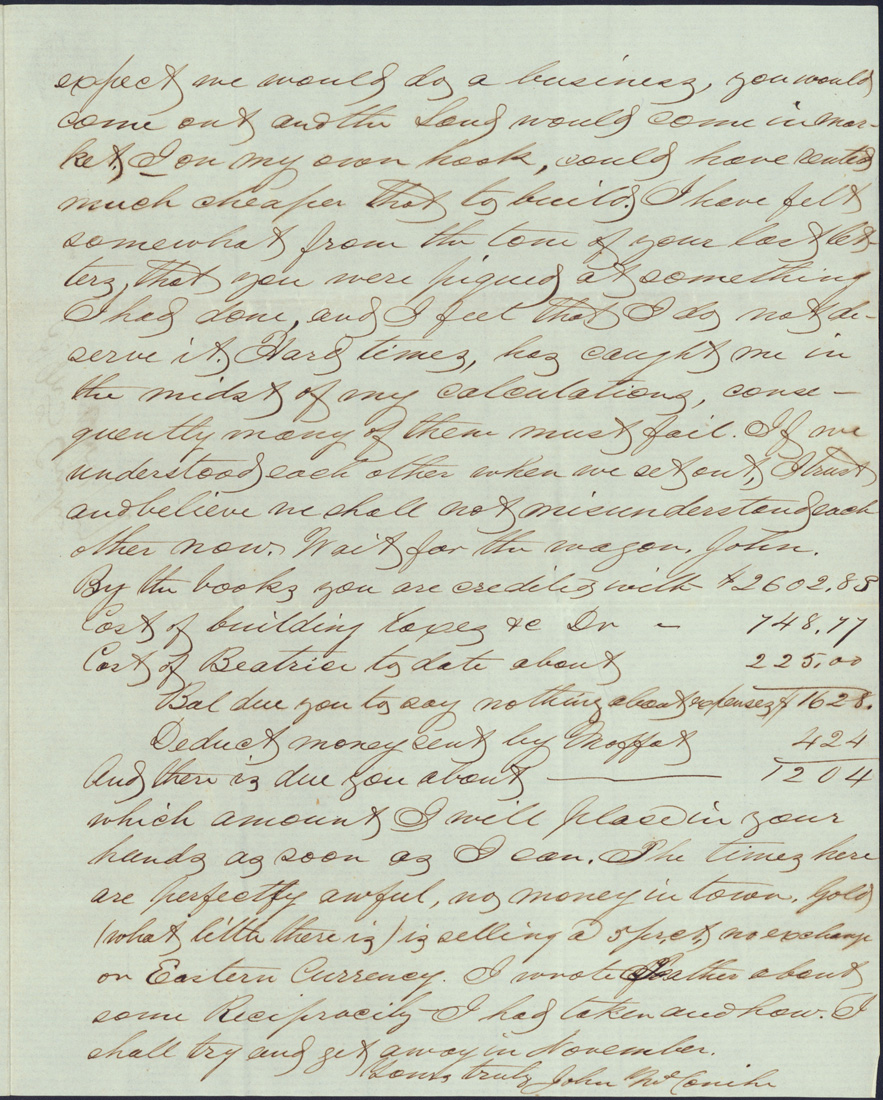 expect we would do a business, you would
come out and the Land would come in mar-
ket, I on my own hook, could have rented
much cheaper that to build. I have felt
somewhat from the tone of your last let-
ters, that you were piqued at something
I had done, and I feel that I do not de-
serve it. Hard times, has caught me in
the midst of my calculations, conse-
quently many of them must fail. If we
understood each other when we set out, I trust
and believe we shall not misunderstand each
other now. Wait for the wagon, John.
By the books you are credited with $2602.85
Cost of building Lopez &c Dr - 748.77
Cost of Beatrice to date about 225.00
Bal due you to say nothing about expenses $1628.
Deduct money sent by Moffat 424
And there is due you about 1204
which amount I will place in your
hands as soon as I can. The times here
are perfectly awful, no money in town. Gold
(what little there is) is selling a 5 pr.ct, no exchange
on Eastern Currency. I wrote Father about
some Reciprocity I had taken and how. I
shall try and get away in November.
Yours truly John McConihe